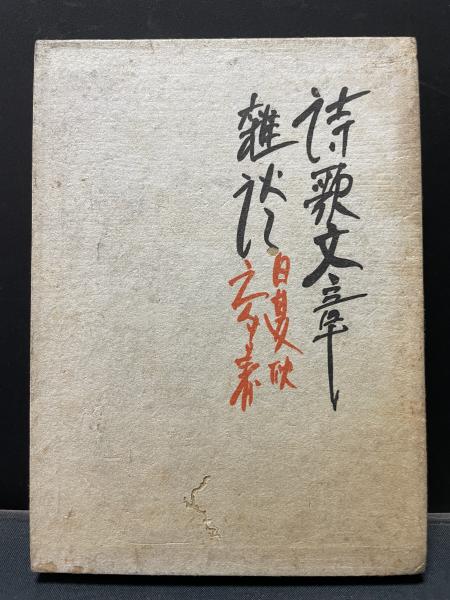 詩歌文章
雜談
日夏耿
之介著